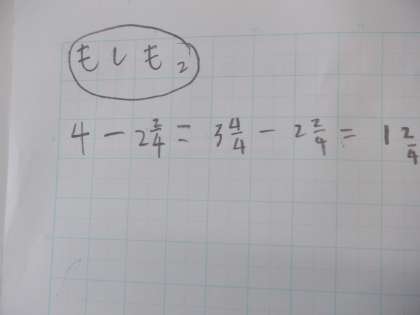 もしも2
4 - 2 2/4 = 3 4/4 - 2 2/4 = 1 2/4